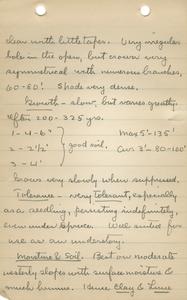 clear with little taper. Very irregular
bole in the open, but crown very
symmetrical with numerous branches,
60-80'. Shade very dense.
Growth - slow, but varies greatly.
often 200-325 yrs.
1 - 4-6" Max 5'-135'
2 - 2½" good soil. Av. 3'-80-100'
3 - 4"
Grows very slowly when suppressed.
Tolerance - very tolerant, especially
as a seedling, persisting indefinitely,
even under spruce. Well suited for
use as an understory.
Moisture & Soil. Best on moderate
westerly slopes with surface moisture &
much humus. Hence clay & lime